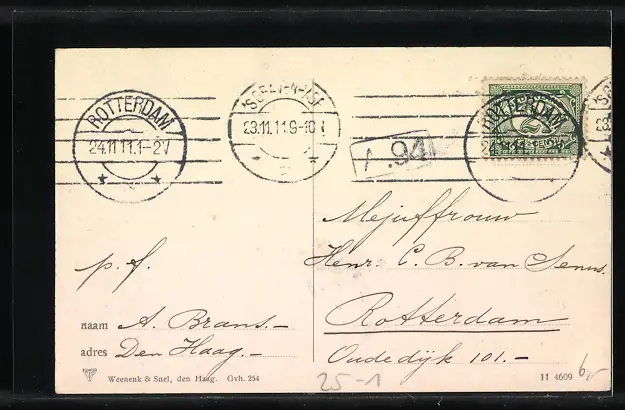 ROTTERDAM
24.11.11.1-2V
23.11.11.9-10V
.94
ROTTERDAM
2½
Mejuffrouw
Henr. C. B. van Senus.
Rotterdam
Oudedijk 101.-
p. f.
naam A. Brans.-
adres Den Haag.-
Weenenk & Snel, den Haag. Gvh. 254
25-1
11 4609